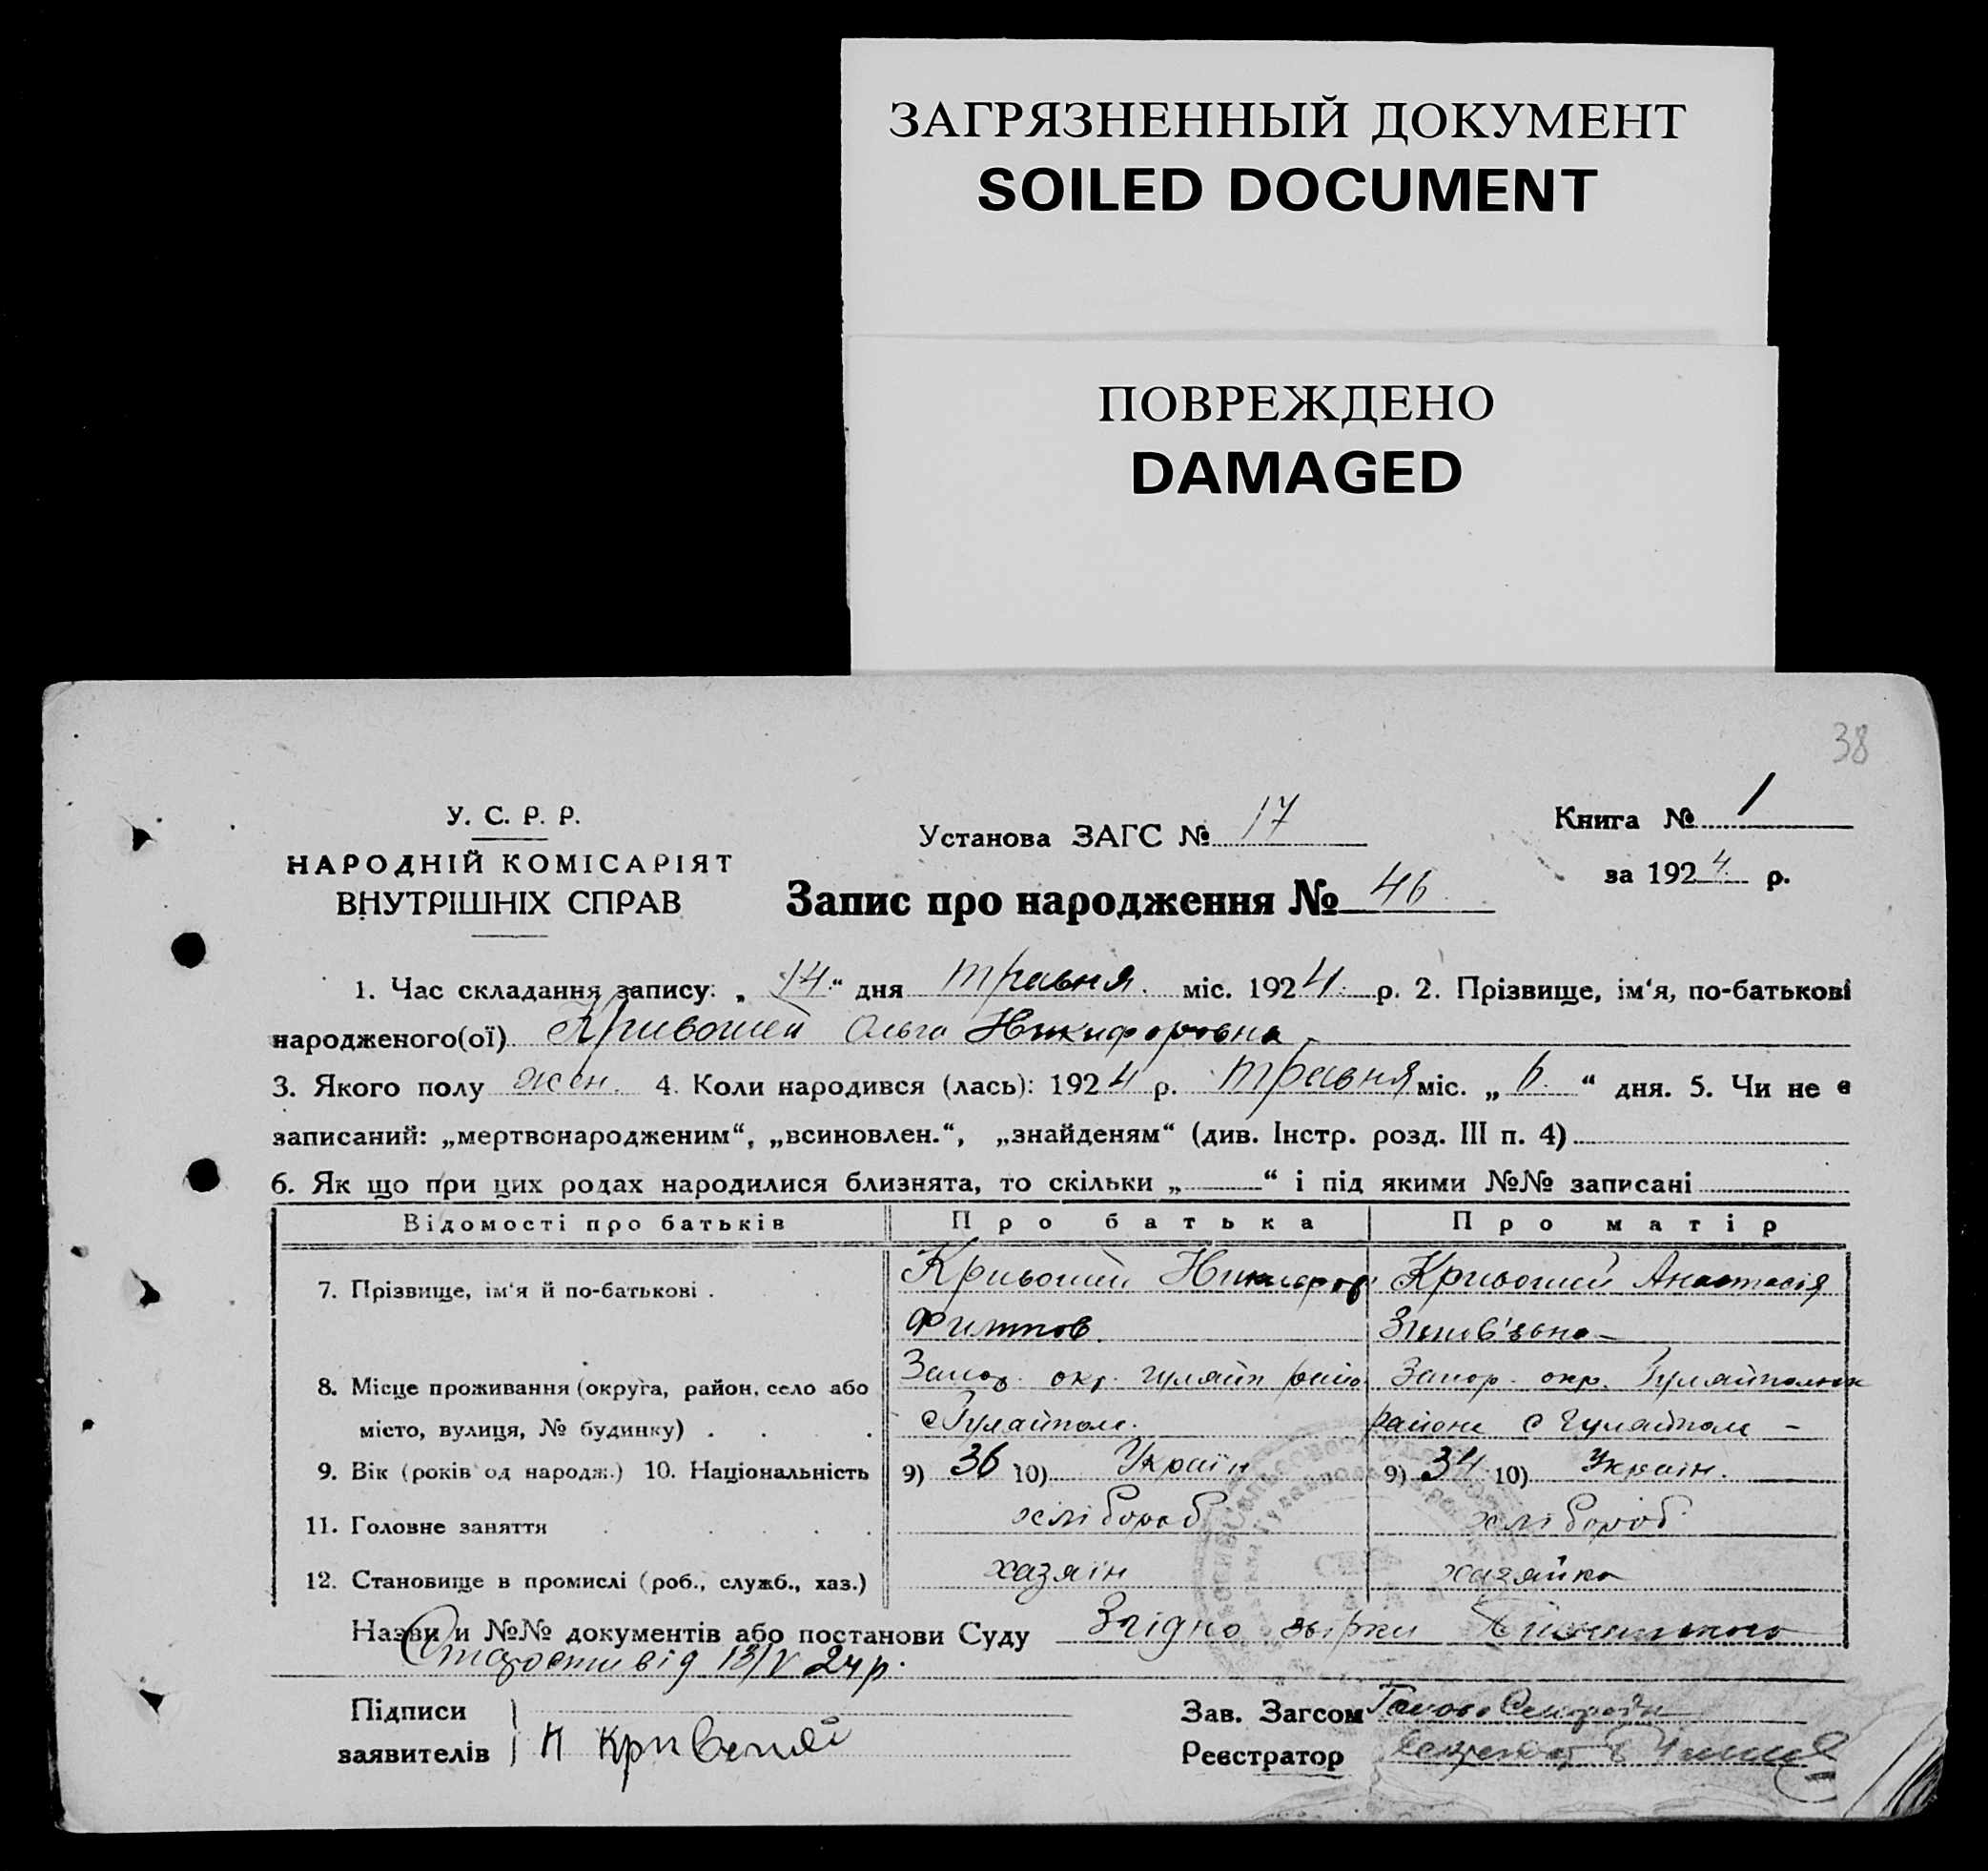 ЗАГРЯЗНЕННЫЙ ДОКУМЕНТ
SOILED DOCUMENT
ПОВРЕЖДЕНО
DAMAGED
38
У. С. Р. Р.
НАРОДНІЙ КОМІСАРІЯТ
ВНУТРІШНІХ СПРАВ
Установа ЗАГС № 17
Запис про народження № 46
Книга № 1
за 1924 р.
1. Час складання запису: „14“ дня травня міс. 1924 р. 2. Прізвище, ім‘я, по-батькові
народженого(ої) Кривошей Ольга Никифоровна
3. Якого полу жен. 4. Коли народився (лась): 1924 р. травня міс. „6“ дня. 5. Чи не є
записаний: „мертвонародженим“, „всиновлен.“, „знайденям“ (див. Інстр. розд. III п. 4)
6. Як що при цих родах народилися близнята, то скільки „ “ і під якими №№ записані
Відомості про батьків Про батька Про матір
7. Прізвище, ім‘я й по-батькові . Кривошей Никифор Кривошей Анастасія
Филипов. Зинов'ьвна
8. Місце проживання (округа, район, село або Запор. окр. Гуляйп. райо Запор. окр. Гуляйпольск
місто, вулиця, № будинку) . с Гуляйполе. района с Гуляйполе
9. Вік (років од народж.) 10. Національність 9) 36 10) Україн 9) 34 10) Україн.
11. Головне заняття хлібороб хлібороб
12. Становище в промислі (роб., служб., хаз.) хазяїн хазяйка
Назви и №№ документів або постанови Суду Згідно
Старости від 13/V 24 р.
Підписи
заявителів Н Кривошей
Зав. Загсом Голова
Реєстратор Секретар